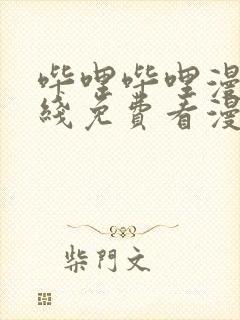 哔哩哔哩漫
线免费看漫
柴門文